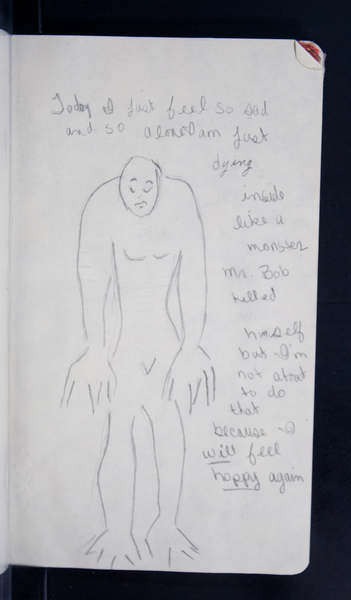 Today I just feel so sad
and so alone I am just
dying
inside
like a
monster
Mr. Bob
killed
himself
but I'm
not about
to do
that
because I
will feel
happy again